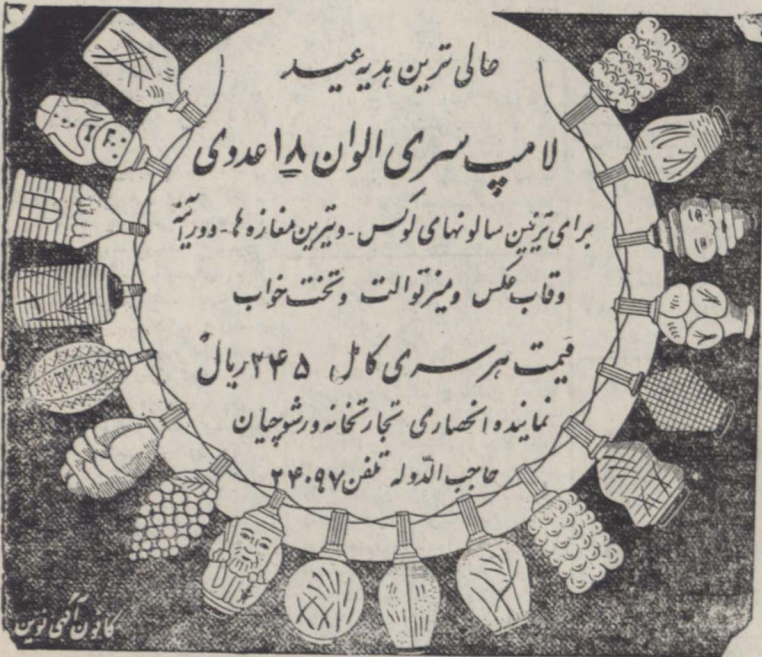 عالی ترین هدیه عید
لامپ سری الوان ۱۸ عددی
برای تزئین سالونهای لوکس - ویترین مغازه ها - دور آئینه
و قاب عکس و میز توالت و تختخواب
قیمت هر سری کامل ۲۴۵ ریال
نماینده انحصاری تجارتخانه ورشوچیان
حاجب الدوله تلفن ۲۴۰۹۷
کانون آگهی نوین